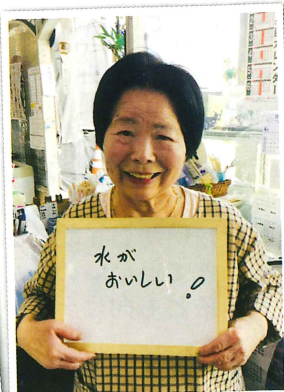 水が
おいしい！